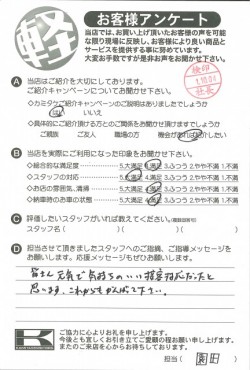 軽
お客様アンケート
当店では、お買い上げ頂いたお客様の声を可能
な限り現場に反映し、お客様により良い商品と
サービスを提供する事に努めています。
大変お手数ですが是非お声をお聞かせ下さい。
検印
社長
A 当店はご紹介を大切にしております。
ご紹介キャンペーンについてお聞かせ下さい。
◇カミタケご紹介キャンペーンのご説明はありましたでしょうか
はい いいえ
◇具体的にご紹介頂ける方とのご関係をお聞かせ頂けますでしょうか
ご親族 ご友人 職場の方 機会があれば紹介したい
B 当店を実際にご利用になった印象をお聞かせ下さい。
◇総合的な満足度 5.大満足 4.満足 3.ふつう 2.やや不満 1.不満
◇スタッフの対応 5.大満足 4.満足 3.ふつう 2.やや不満 1.不満
◇お店の雰囲気、清掃 5.大満足 4.満足 3.ふつう 2.やや不満 1.不満
◇納車時のお車の状態 5.大満足 4.満足 3.ふつう 2.やや不満 1.不満
C 評価したいスタッフがいれば教えてください。(複数回答可)
スタッフ名( )( )( )
D 担当させて頂きましたスタッフへのご指摘、ご指導メッセージを
お願いします。応援メッセージもぜひお願いします。
皆さん元気で気持ちのいい接客対応だったと
思います。これからもがんばって下さい。
K
ご協力に心よりお礼を申し上げます。
今後とも宜しくお引き立てご愛顧の程お願い申し上げます。
またのご来店を心からお待ちしております。
担当( 園田 )